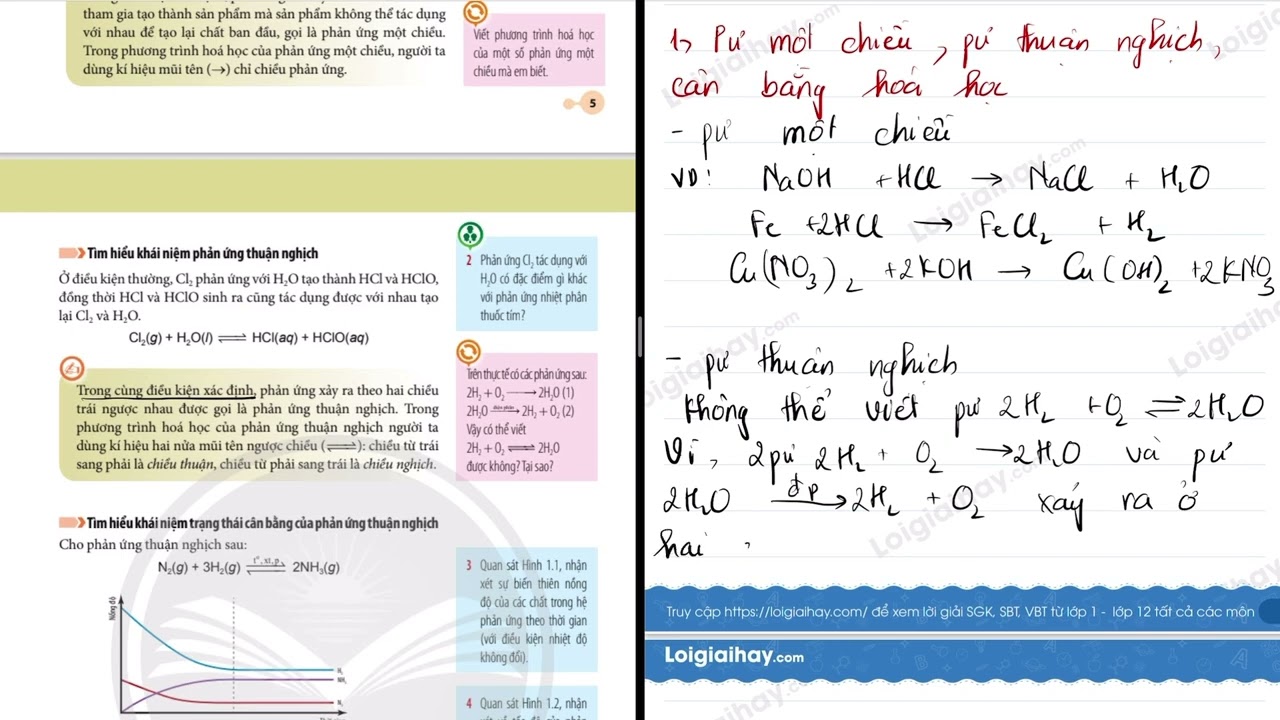 tham gia tạo thành sản phẩm mà sản phẩm không thể tác dụng
với nhau để tạo lại chất ban đầu, gọi là phản ứng một chiều.
Trong phương trình hoá học của phản ứng một chiều, người ta
dùng kí hiệu mũi tên (→) chỉ chiều phản ứng.
Viết phương trình hoá học
của một số phản ứng một
chiều mà em biết.
5
Tìm hiểu khái niệm phản ứng thuận nghịch
Ở điều kiện thường, Cl₂ phản ứng với H₂O tạo thành HCl và HClO,
đồng thời HCl và HClO sinh ra cũng tác dụng được với nhau tạo
lại Cl₂ và H₂O.
Cl₂(g) + H₂O(l) ⇌ HCl(aq) + HClO(aq)
2 Phản ứng Cl₂ tác dụng với
H₂O có đặc điểm gì khác
với phản ứng nhiệt phân
thuốc tím?
Trong cùng điều kiện xác định, phản ứng xảy ra theo hai chiều
trái ngược nhau được gọi là phản ứng thuận nghịch. Trong
phương trình hoá học của phản ứng thuận nghịch người ta
dùng kí hiệu hai nửa mũi tên ngược chiều (⇌): chiều từ trái
sang phải là chiều thuận, chiều từ phải sang trái là chiều nghịch.
Trên thực tế có các phản ứng sau:
2H₂ + O₂ → 2H₂O (1)
2H₂O điện phân→ 2H₂ + O₂ (2)
Vậy có thể viết
2H₂ + O₂ ⇌ 2H₂O
được không? Tại sao?
Tìm hiểu khái niệm trạng thái cân bằng của phản ứng thuận nghịch
Cho phản ứng thuận nghịch sau:
N₂(g) + 3H₂(g) t°, xt, p⇌ 2NH₃(g)
3 Quan sát Hình 1.1, nhận
xét sự biến thiên nồng
độ của các chất trong hệ
phản ứng theo thời gian
(với điều kiện nhiệt độ
không đổi).
4 Quan sát Hình 1.2, nhận
Nồng độ
H₂
NH₃
N₂
1, Pư một chiều, pư thuận nghịch,
cân bằng hoá học
- pư một chiều
VD: NaOH + HCl → NaCl + H₂O
Fe + 2HCl → FeCl₂ + H₂
Cu(NO₃)₂ + 2KOH → Cu(OH)₂ + 2KNO₃
- pư thuận nghịch
Không thể viết pư 2H₂ + O₂ ⇌ 2H₂O
Vì, 2 pư 2H₂ + O₂ → 2H₂O và pư
2H₂O đp→ 2H₂ + O₂ xảy ra ở
hai
Truy cập https://loigiaihay.com/ để xem lời giải SGK, SBT, VBT từ lớp 1 - lớp 12 tất cả các môn
Loigiaihay.com